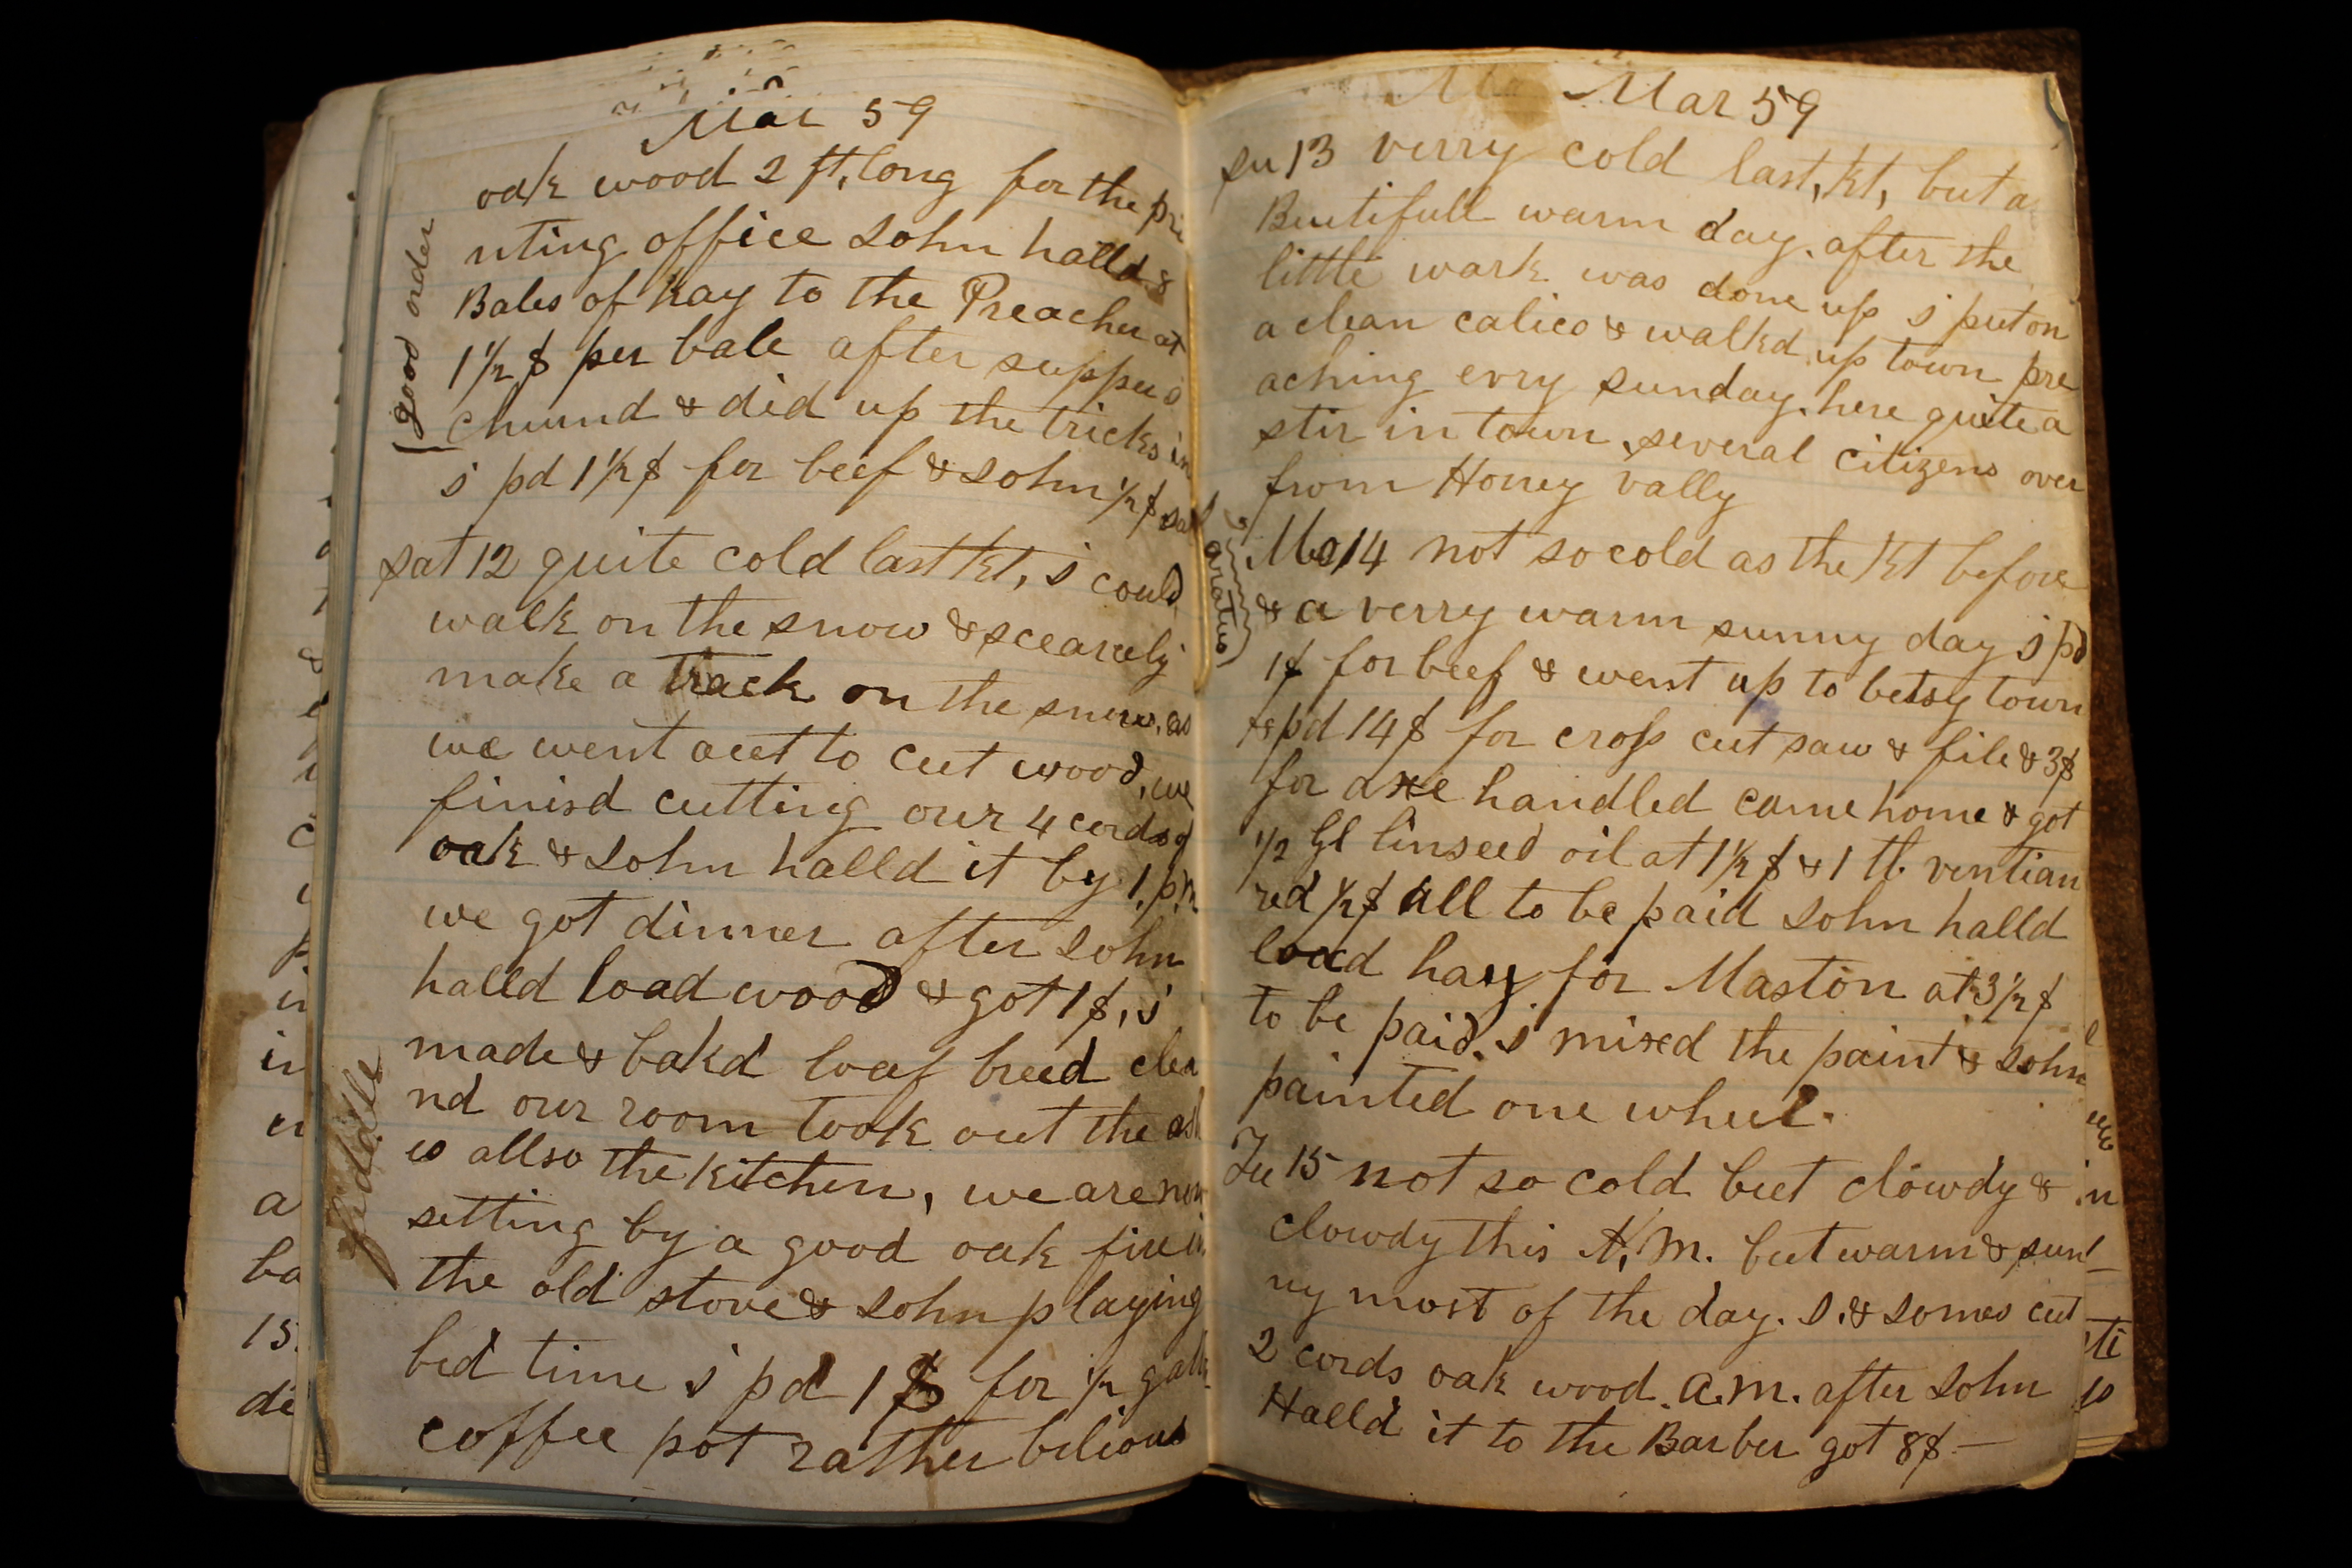 Mar 59
oak wood 2 ft, long for the pri
nting office John halld 8
Bales of hay to the Preacher at
1 1/2 $ per bale after supper i
churnd & did up the tricks in
good order
i pd 1 1/2 $ for beef & John 1/2 $
sat 12 quite cold last Nt, i could
walk on the snow & scearcely
make a track on the snow, as
we went out to cut wood, we
finisd cutting our 4 cords of
oak & John halld it by 1, p,m
we got dinner after John
halld load wood & got 1 $, i
made & bakd loaf breed clea
nd our room took out the ash
es allso the kitchen, we are now
setting by a good oak fire in
the old stove & John playing
fiddle
bed time i pd 1 $ for 1/2 gall
coffee pot rather bilious
Mar 59
su 13 verry cold last, Nt, but a
Beutifull warm day. after the
little work was done up i put on
a clean calico & walkd up town pre
aching evry sunday. here quite a
stir in town, several citizens over
from Honey vally
Mo 14 not so cold as the Nt before
& a verry warm sunny day i pd
1 $ for beef & went up to betsy town
& pd 14 $ for cross cut saw & file & 3 $
for axe handled came home & got
1/2 Gl linseed oil at 1 1/2 $ & 1 lb. ventian
red 1/2 $ all to be paid John halld
load hay for Maston at 3 1/2 $
to be paid. i mixed the paint & John
painted one wheel.
Tu 15 not so cold but clowdy &
clowdy this A, M. but warm & sun
ny most of the day. J. & Jomes cut
2 cords oak wood. a.m. after John
Halld it to the Barber got 8 $ —